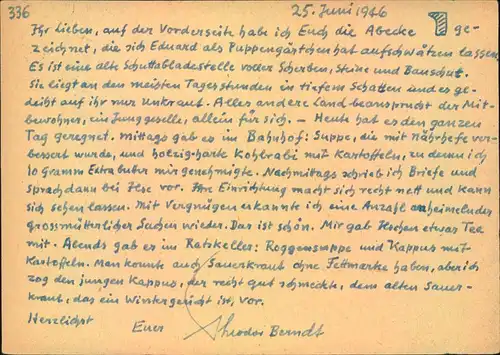 336
25. Juni 1946
Ihr Lieben, auf der Vorderseite habe ich Euch die Abecke ge-
zeichnet, die sich Eduard als Puppengärtchen hat aufschwätzen lassen.
Es ist eine alte Schuttabladestelle voller Scherben, Steine und Bauschutt.
Sie liegt an den meisten Tagesstunden in tiefem Schatten und es ge-
deiht auf ihr nur Unkraut. Alles andere Land beansprucht der Mit-
bewohner, ein Junggeselle, allein für sich. — Heute hat es den ganzen
Tag geregnet. Mittags gab es im Bahnhof: Suppe, die mit Nährhefe ver-
bessert wurde, und holzig-harte Kohlrabi mit Kartoffeln, zu denen ich
10 gramm Extrabutter mir genehmigte. Nachmittags schrieb ich Briefe und
sprach dann bei Ilse vor. Ihre Einrichtung macht sich recht nett und kann
sich sehen lassen. Mit Vergnügen erkannte ich eine Anzahl anheimelnder
grossmütterlicher Sachen wieder. Das ist schön. Mir gab Ilschen etwas Tee
mit. Abends gab es im Ratskeller: Roggensuppe und Kappus mit
Kartoffeln. Man konnte auch Sauerkraut ohne Fettmarke haben, aber ich
zog den jungen Kappus, der recht gut schmeckte, dem alten Sauer-
kraut, das ein Wintergericht ist, vor.
Herzlichst Euer Theodor Berndt